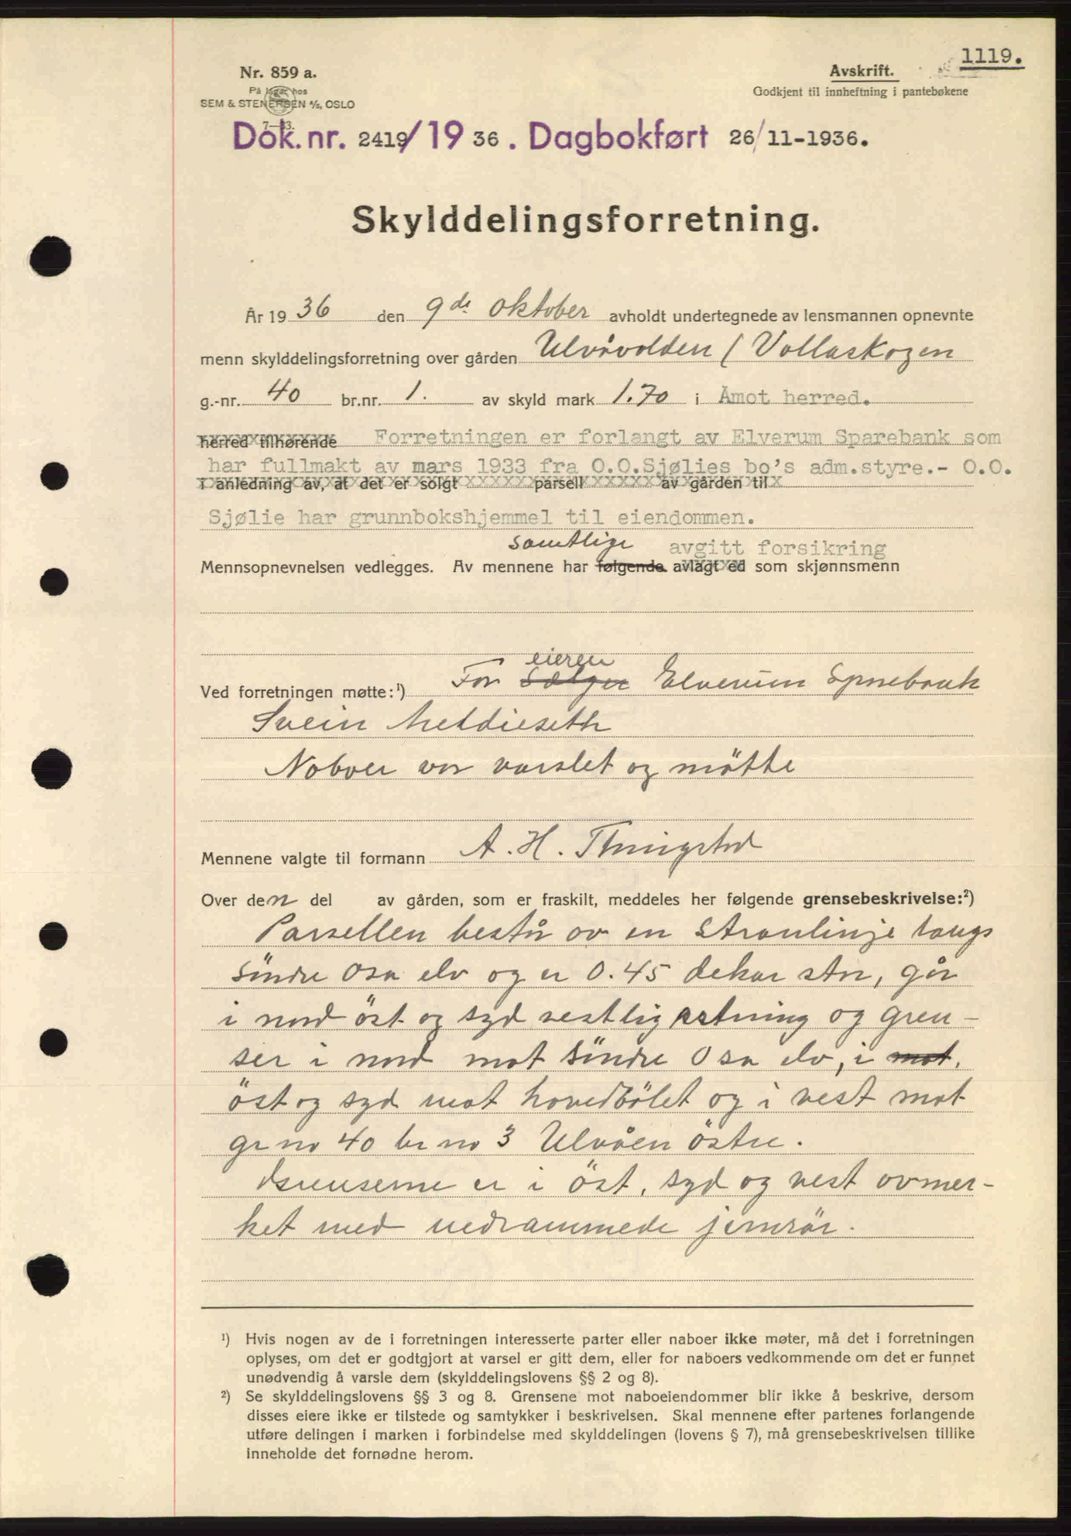 1119.
Nr. 859 a.
På lager hos
SEM & STENERSEN A/S, OSLO
7—33.
Avskrift.
Godkjent til innheftning i pantebøkene
Dok. nr. 2419/1936. Dagbokført 26/11-1936.
Skylddelingsforretning.
År 1936 den 9de oktober avholdt undertegnede av lensmannen opnevnte
menn skylddelingsforretning over gården Ulvåvolden (Vollaskogen
g.-nr. 40 br.nr. 1. av skyld mark 1.70 i Åmot herred.
herred tilhørende Forretningen er forlangt av Elverum Sparebank som
har fullmakt av mars 1933 fra O.O.Sjølies bo's adm.styre.- O.O.
i anledning av, at det er solgt parsell av gården til
Sjølie har grunnbokshjemmel til eiendommen.
samtlige avgitt forsikring
Mennsopnevnelsen vedlegges. Av mennene har følgende avlagt ed som skjønnsmenn
eieren
Ved forretningen møtte:¹) For Sælger Elverum Sparebank
Svein
Naboer var varslet og møtte
Mennene valgte til formann A. H.
Over den del av gården, som er fraskilt, meddeles her følgende grensebeskrivelse:²)
Parsellen består av en Stranlinje langs
Söndre Osa elv og er 0.45 dekar stor, går
i nord öst og syd vestlig retning og gren-
ser i nord mot Söndre Osa elv, i mot,
öst og syd mot hovedbölet og i vest mot
gr no 40 br no 3 Ulvåen östre.
Grenserne er i öst, syd og vest avmer-
ket med nedrammede jernrör.
¹) Hvis nogen av de i forretningen interesserte parter eller naboer ikke møter, må det i forretningen
oplyses, om det er godtgjort at varsel er gitt dem, eller for naboers vedkommende om det er funnet
unødvendig å varsle dem (skylddelingslovens §§ 2 og 8).
²) Se skylddelingslovens §§ 3 og 8. Grensene mot naboeiendommer blir ikke å beskrive, dersom
disses eiere ikke er tilstede og samtykker i beskrivelsen. Skal mennene efter partenes forlangende
utføre delingen i marken i forbindelse med skylddelingen (lovens § 7), må grensebeskrivelsen tillike
inneholde det fornødne herom.